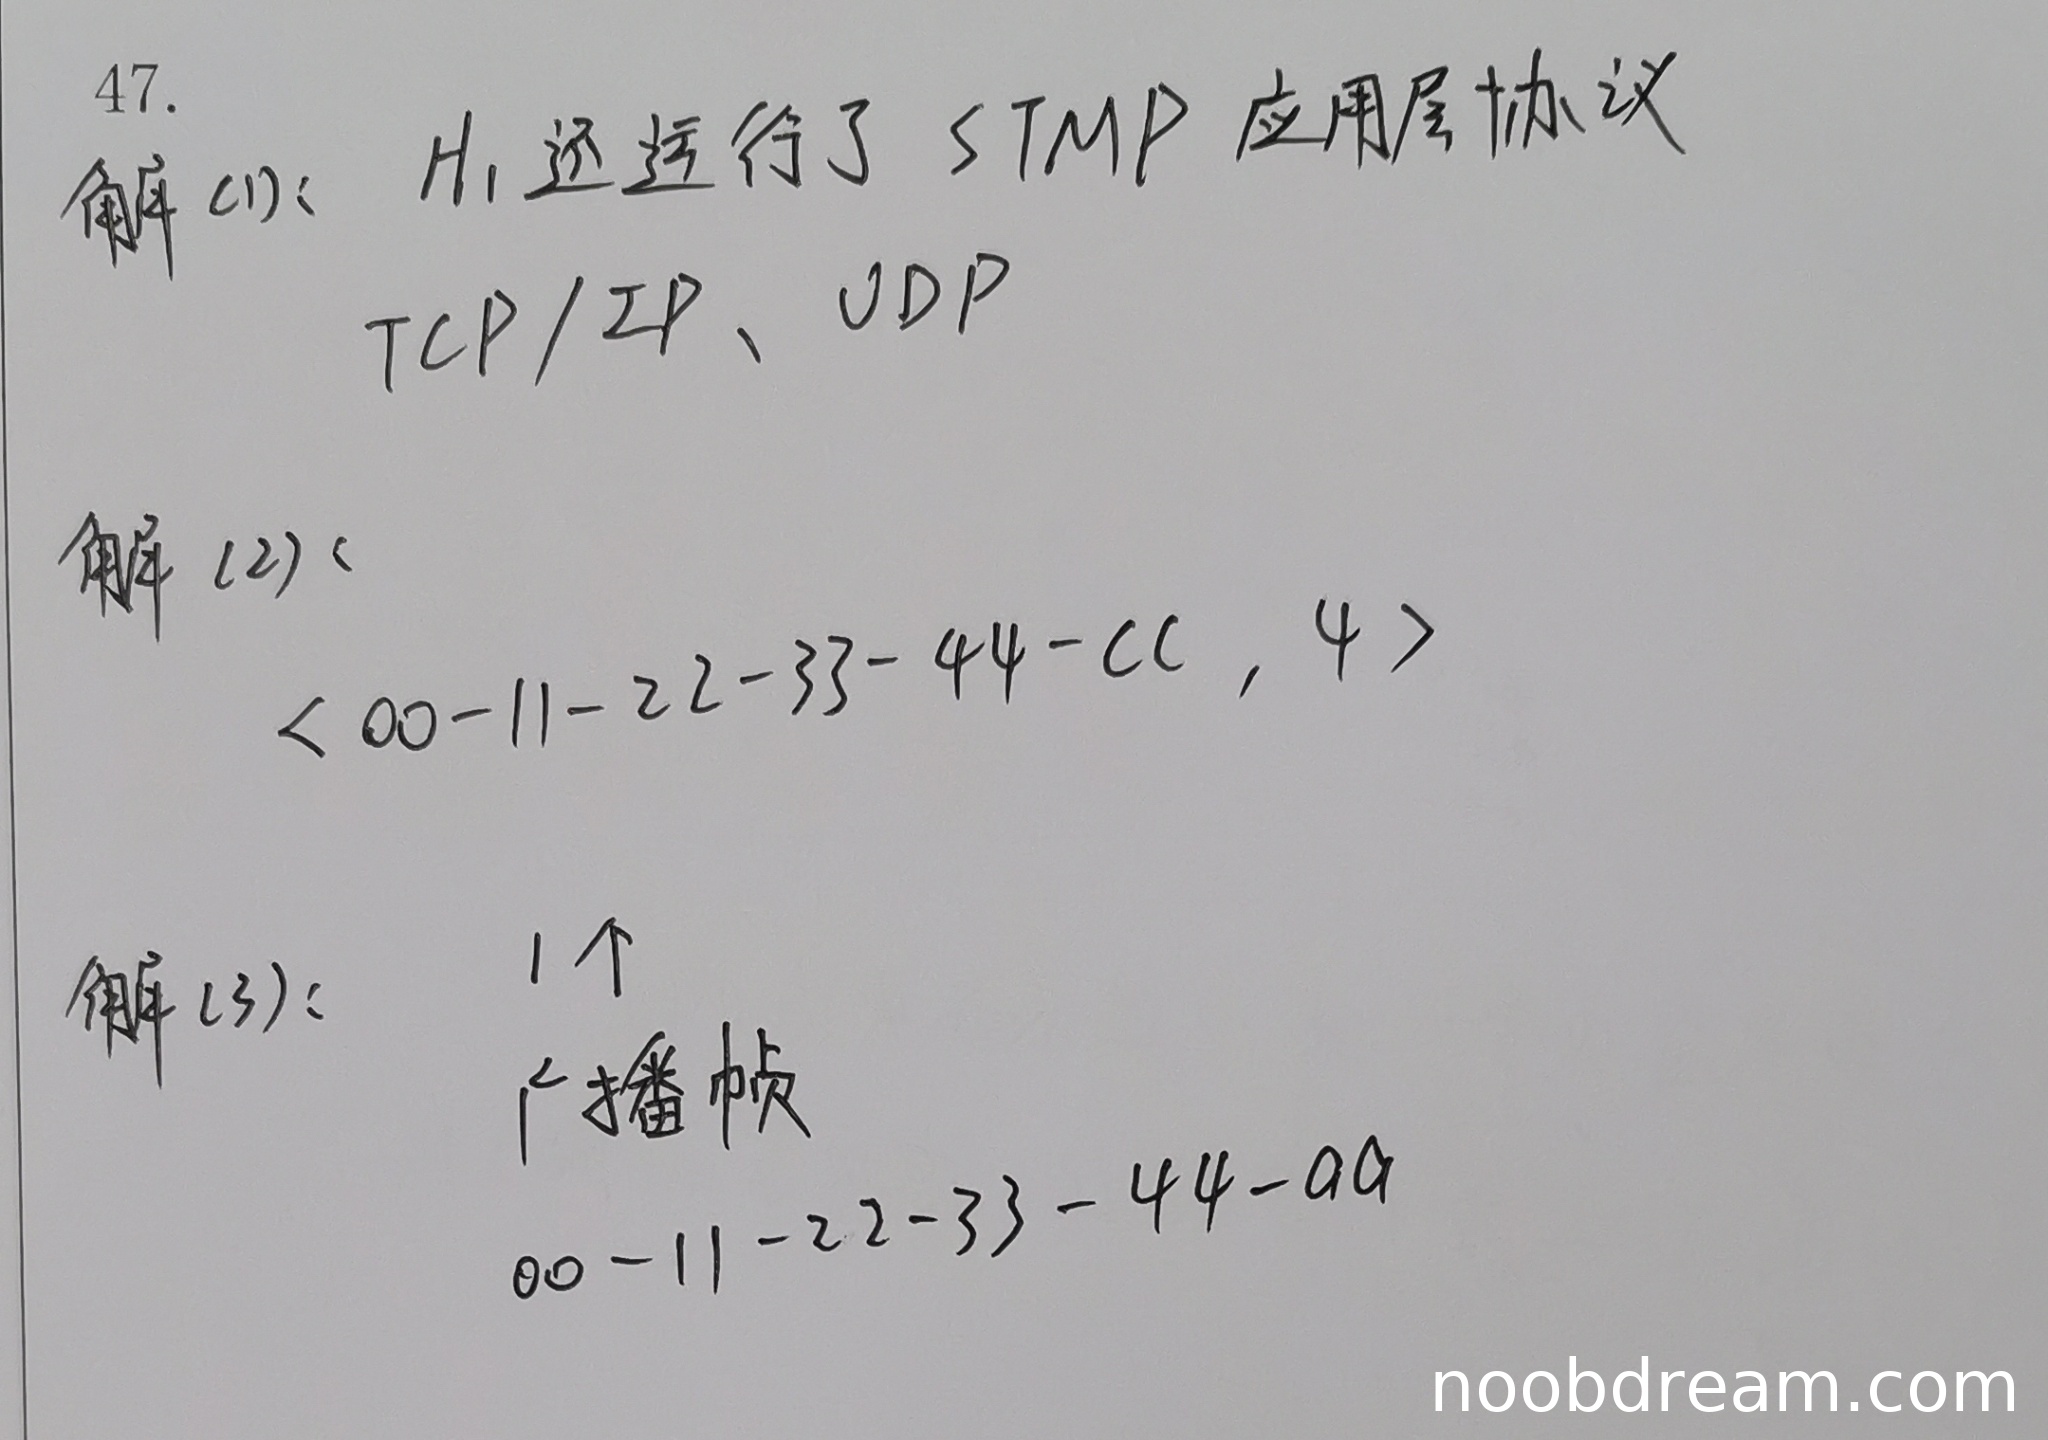 47.
解(1): H1还运行了 STMP 应用层协议
TCP/IP、UDP
解(2):
<00-11-22-33-44-CC, 4>
解(3): 1个
广播帧
00-11-22-33-44-aa
noobdream.com